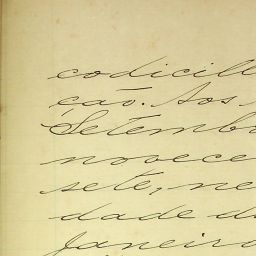 codicill
ção. Aos
Setembr
novece
sete, ne
dade d
Janeiro